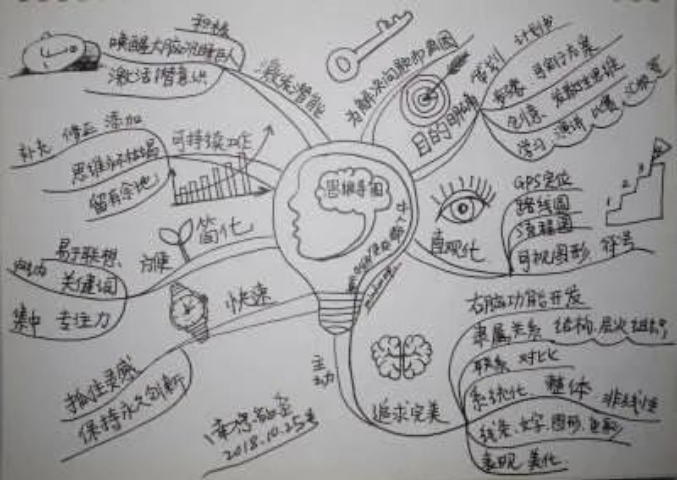 思维导图
激发潜能
积极
唤醒大脑沉睡巨人
激活潜意识
可持续工作
补充 修正 添加
思维永不枯竭
留有余地
简化
方便
易于联想
关键词
集中 专注力
快速
抓住灵感
保持永久创新
主动
2018.10.25
为解决问题
目的明确
策划 计划书
可行方案
创意 发散性思维
学习 演讲 比赛 汇报
直观化
GPS定位
路线图
流程图
可视图形 符号
1
2
3
追求完美
右脑功能开发
隶属关系 结构 层次 组织
联系 对比
系统化 整体 非线性
线条 文字 图形 色彩
表现 美化